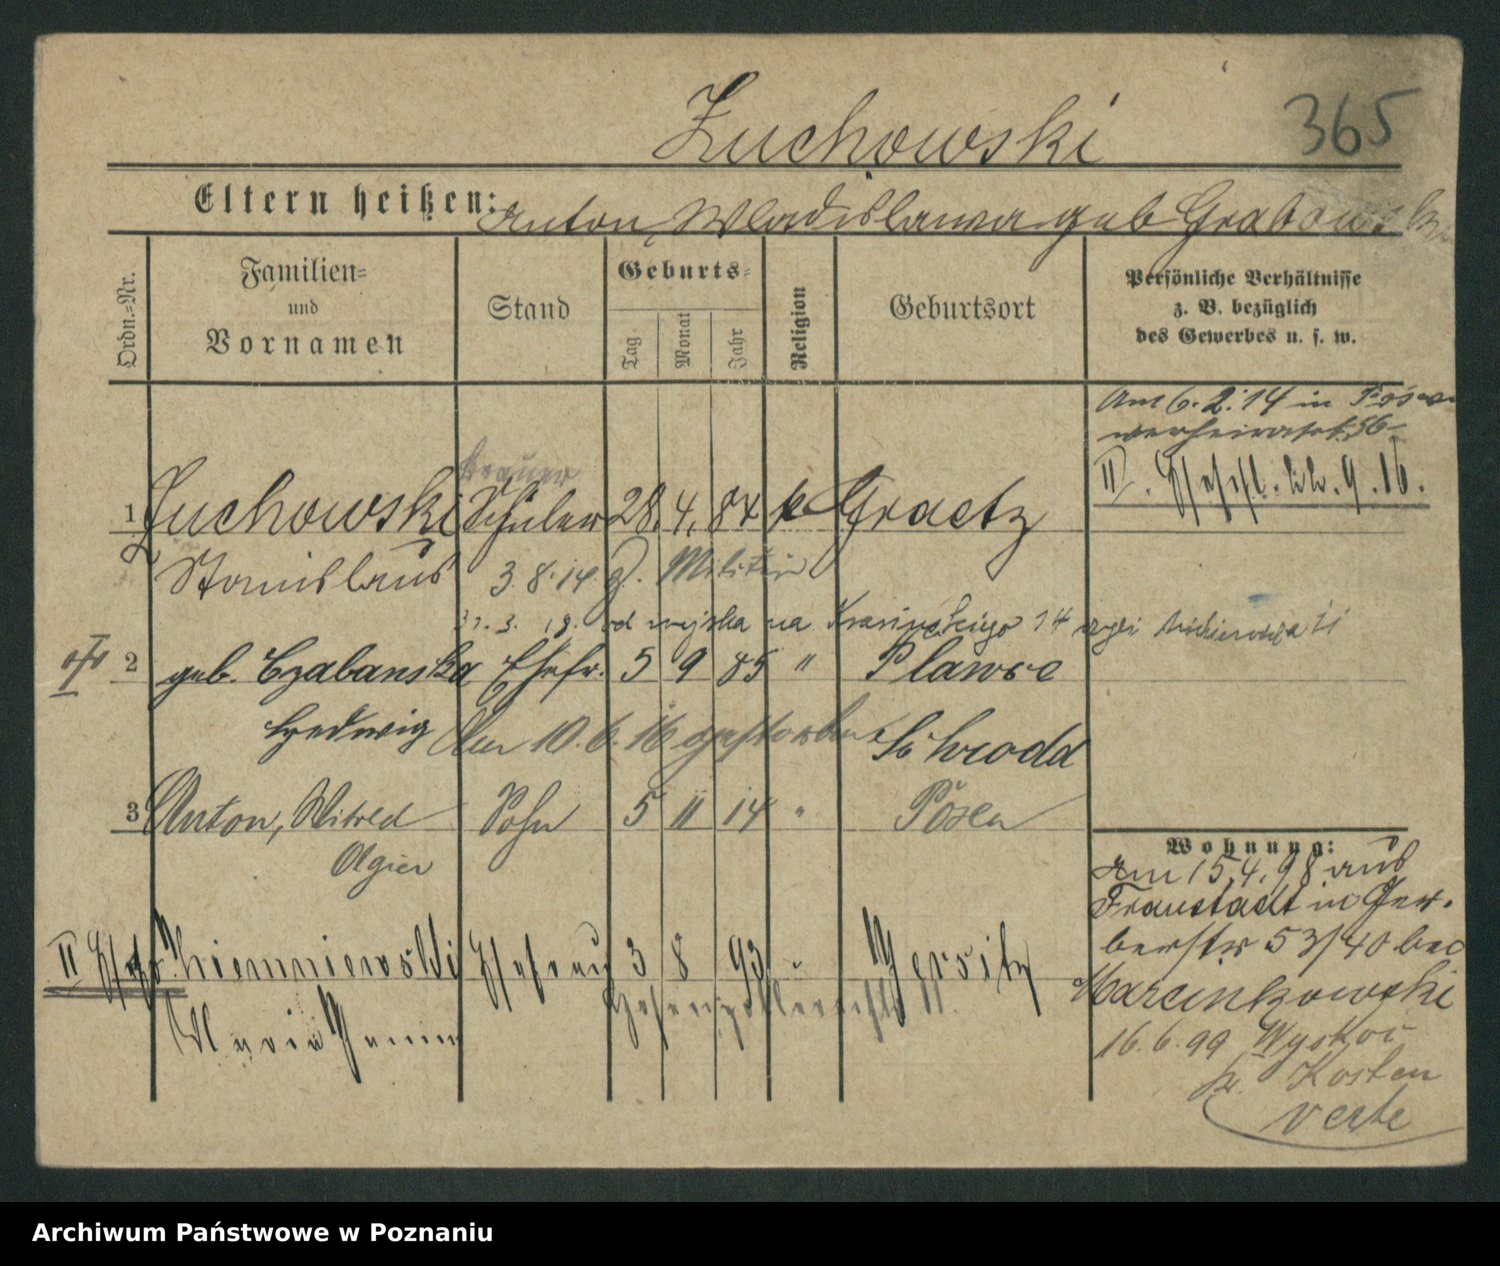 Zuchowski
365
Eltern heißen: Anton, Wladislawa geb Grabowska
Ordn.-Nr.
Familien- und Vornamen
Stand
Geburts-
Tag
Monat
Jahr
Religion
Geburtsort
Persönliche Verhältnisse
z. B. bezüglich
des Gewerbes u. s. w.
Am 6.2.14 in Posen
verheiratet 56
II. Ehesch. 9.16.
Brauer
1 Zuchowski Schüler 28. 4. 84 k Graetz
Stanislaus 3.8.14 z. Militär
31.3.19. od wojska na Krasińskiego 14
2 geb. Czabanska Ehefr. 5 9 85 " Plawce
Hedwig Am 10.6.16 gestorben Schrodd
3 Anton, Witold Sohn 5 11 14 " Posen
Olgier
II Ehefr. Ehefrau 3 8 93 " Jersitz
Maria
Wohnung:
Am 15.4.98 aus
Fraustadt in Ger-
berstr 53/40 bei
Marcinkowski
16.6.99 Wyskoc
Kr. Kosten
verte
Archiwum Państwowe w Poznaniu